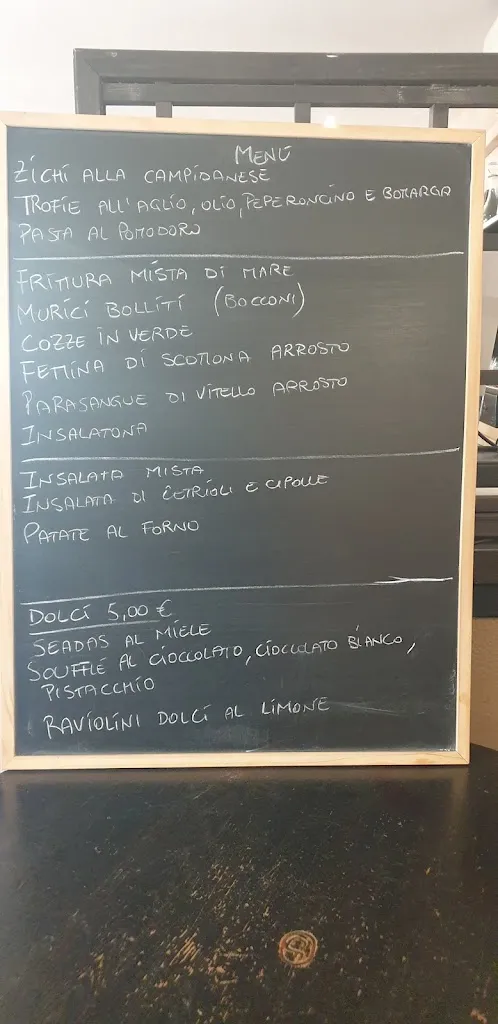 MENÚ
ZICHI ALLA CAMPIDANESE
TROFIE ALL'AGLIO, OLIO, PEPERONCINO E BOTTARGA
PASTA AL POMODORO
FRITTURA MISTA DI MARE
MURICI BOLLITI (BOCCONI)
COZZE IN VERDE
FETTINA DI SCOTTONA ARROSTO
PARASANGUE DI VITELLO ARROSTO
INSALATONA
INSALATA MISTA
INSALATA DI CETRIOLI E CIPOLLE
PATATE AL FORNO
DOLCI 5,00 €
SEADAS AL MIELE
SOUFFLÉ AL CIOCCOLATO, CIOCCOLATO BIANCO,
PISTACCHIO
RAVIOLINI DOLCI AL LIMONE